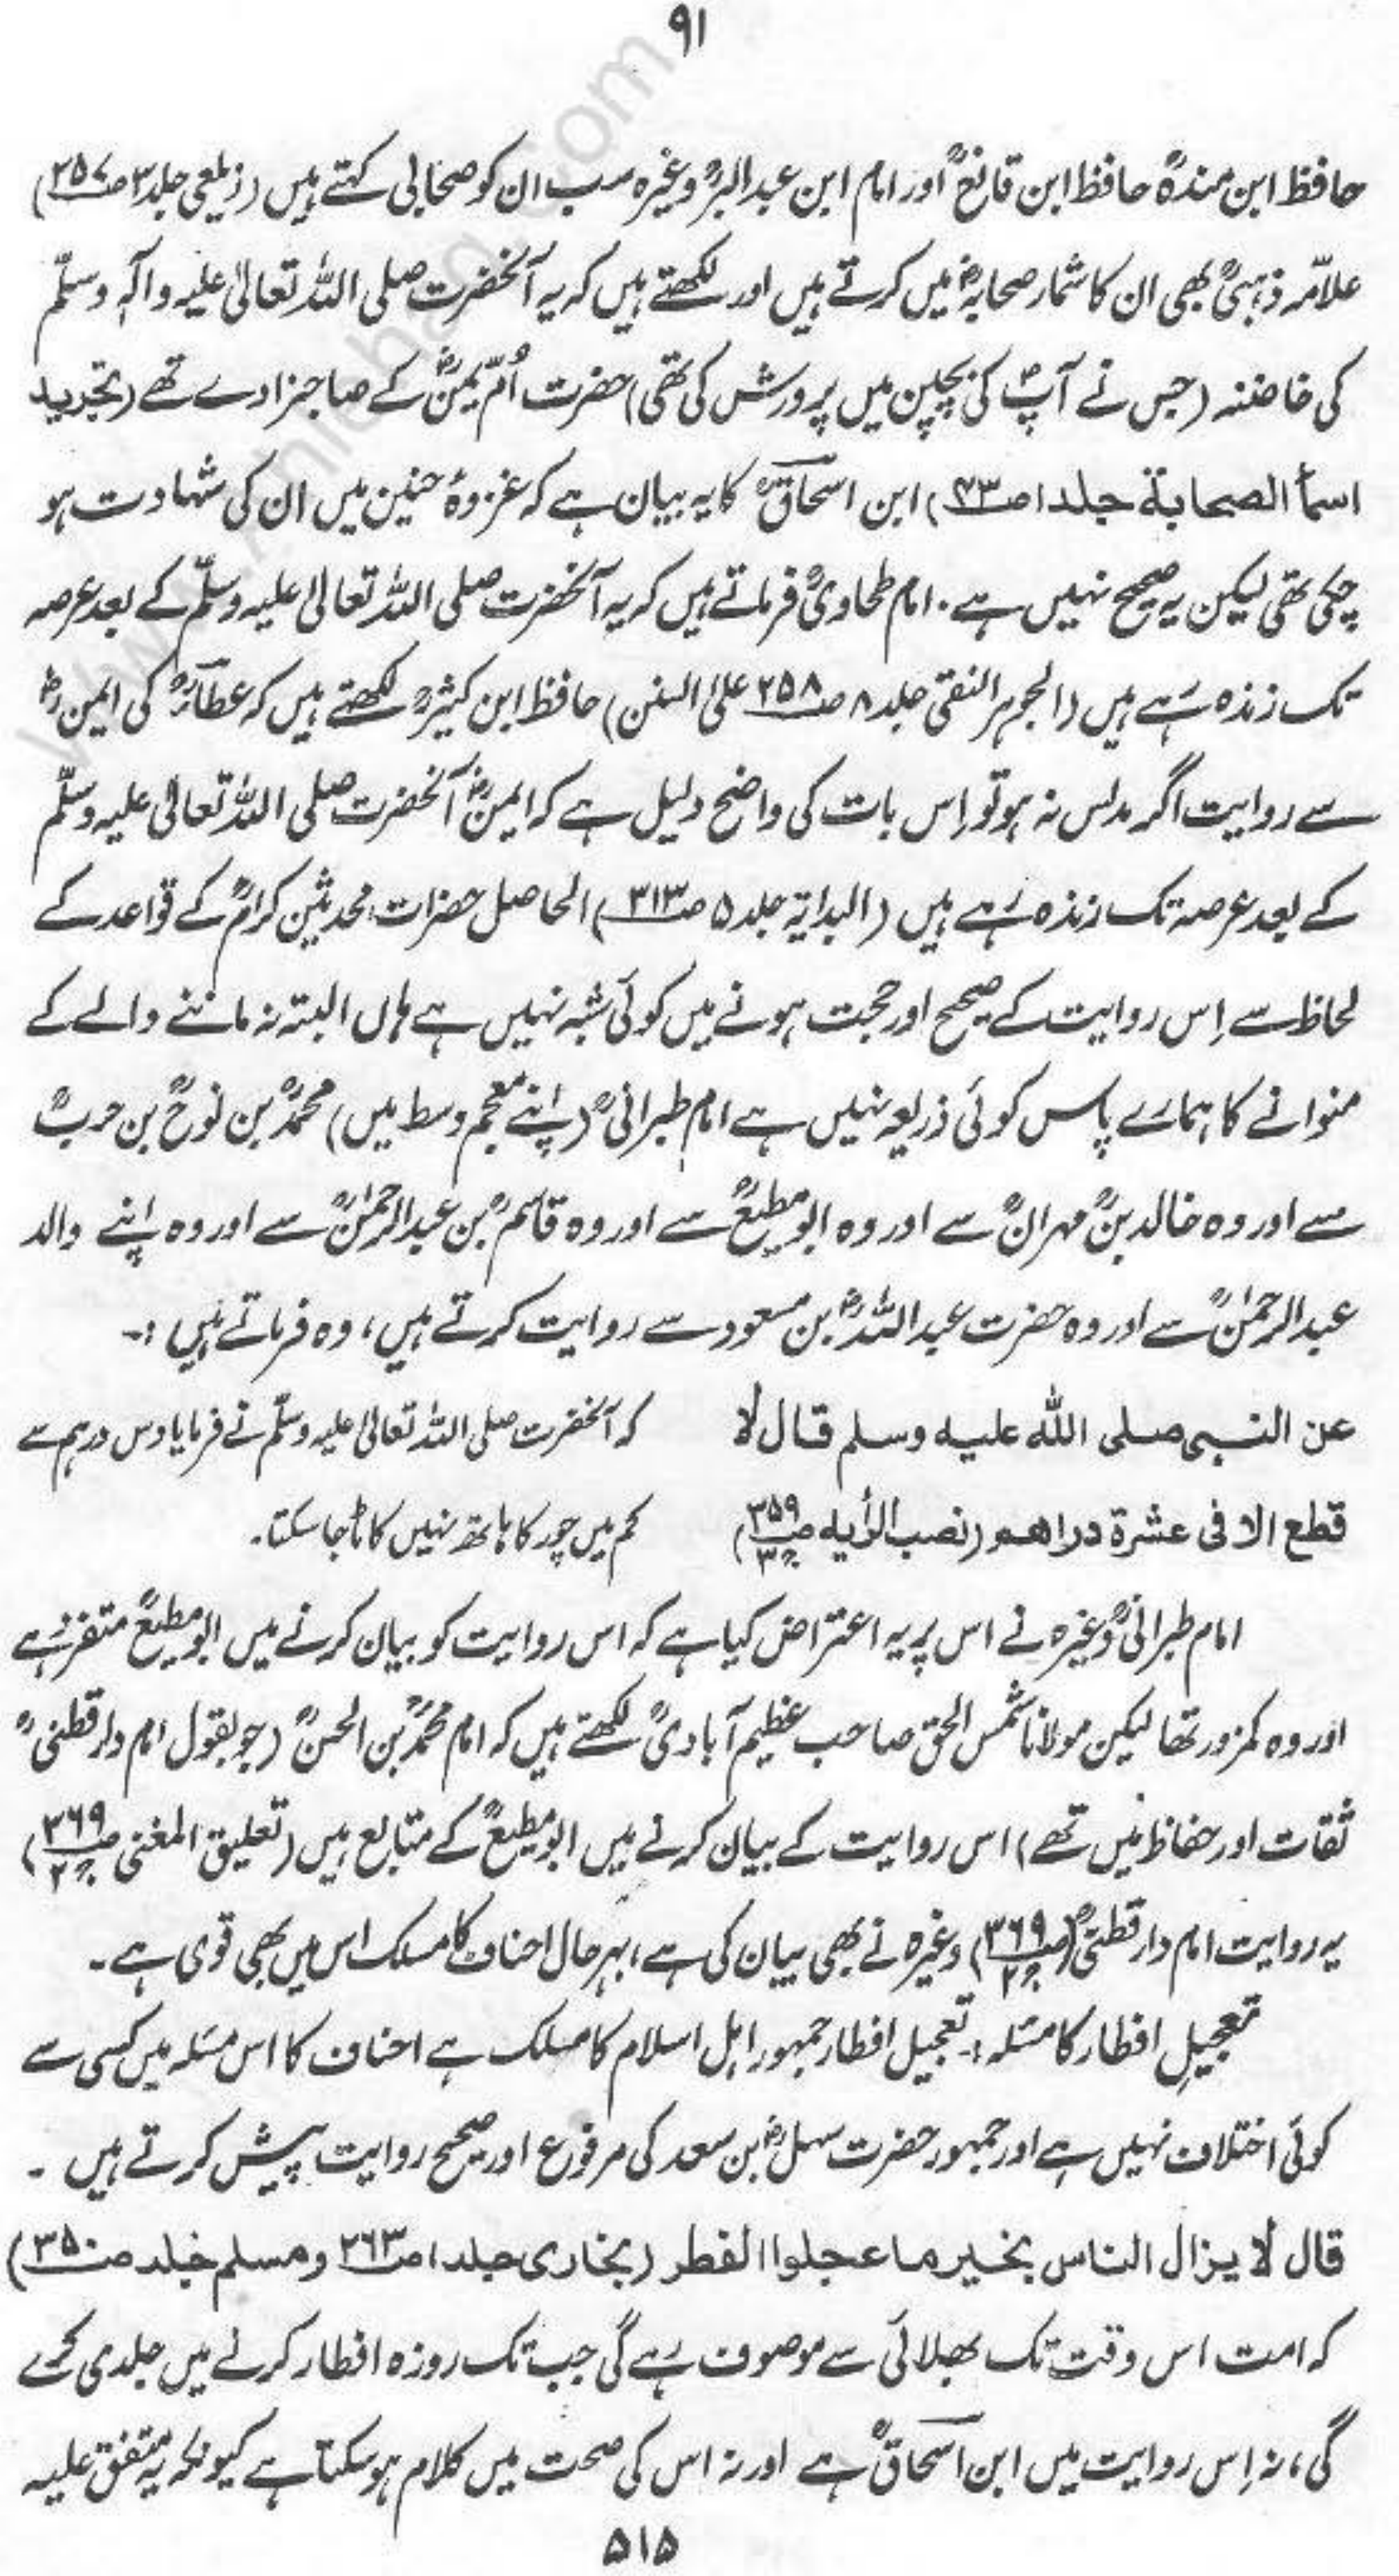 ۹۱
حافظ ابن مندہؒ حافظ ابن قانعؒ اور امام ابن عبدالبرؒ وغیرہ سب ان کو صحابی کہتے ہیں (زیلعی جلد ۳ ص۳۵۷)
علامّہ ذہبیؒ بھی ان کا شمار صحابہؓ میں کرتے ہیں اور لکھتے ہیں کہ یہ آنحضرت صلی اللہ تعالیٰ علیہ وآلہٖ وسلّم
کی خاضنہ (جس نے آپؐ کی بچپن میں پرورش کی تھی) حضرت اُمّ یمنؓ کے صاجزادے تھے (تجرید
اسمأ الصحابة جلد ۱ ص۳۳) ابن اسحاقؒ کا یہ بیان ہے کہ غزوۂ حنین میں ان کی شہادت ہو
چکی تھی لیکن یہ صحیح نہیں ہے۔ امام طحاویؒ فرماتے ہیں کہ یہ آنحضرت صلی اللہ تعالیٰ علیہ وسلّم کے بعد عرصہ
تک زندہ رہے ہیں (الجوہر النقی جلد ۸ ص۲۵۸ علیٰ السنن) حافظ ابن کثیرؒ لکھتے ہیں کہ عطاءؒ کی ایمنؓ
سے روایت اگر مدلس نہ ہو تو اِس بات کی واضح دلیل ہے کہ ایمنؓ آنحضرت صلی اللہ تعالیٰ علیہ وسلّم
کے بعد عرصہ تک زندہ رہے ہیں (البدایۃ جلد ۵ ص۳۱۳) الحاصل حضرات محدثین کرامؒ کے قواعد کے
لحاظ سے اِس روایت کے صحیح اور حجت ہونے میں کوئی شبہ نہیں ہے ہاں البتہ نہ ماننے والے کے
منوانے کا ہمارے پاس کوئی ذریعہ نہیں ہے امام طبرانیؒ (اپنے معجم وسط میں) محمدؒ بن نوحؒ بن حربؒ
سے اور وہ خالد بنؒ مہرانؒ سے اور وہ ابو مطیعؒ سے اور وہ قاسمؒ بن عبدالرحمٰنؒ سے اور وہ اپنے والد
عبدالرحمٰنؒ سے اور وہ حضرت عبداللہؓ بن مسعود سے روایت کرتے ہیں، وہ فرماتے ہیں :-
عن النبی صلی اللہ علیہ وسلم قال لا    کہ آنحضرت صلی اللہ تعالیٰ علیہ وسلّم نے فرمایا دس درہم سے
قطع الا فی عشرة دراھم (نصب الرأیہ ص۳۵۹ ج۳)    کم میں چور کا ہاتھ نہیں کاٹا جا سکتا۔
امام طبرانیؒ وغیرہ نے اس پر یہ اعتراض کیا ہے کہ اس روایت کو بیان کرنے میں ابو مطیعؒ متفرد ہے
اور وہ کمزور تھا لیکن مولانا شمس الحق صاحب عظیم آبادیؒ لکھتے ہیں کہ امام محمدؒ بن الحسنؒ (جو بقول امام دارقطنیؒ
ثقات اور حفاظ میں تھے) اس روایت کے بیان کرنے میں ابو مطیعؒ کے متابع ہیں (تعلیق المغنی ص۳۶۹ ج۲)
یہ روایت امام دارقطنیؒ (ص۳۶۹ ج۲) وغیرہ نے بھی بیان کی ہے، بہرحال احناف کا مسلک اس میں بھی قوی ہے۔
تعجیلِ افطار کا مسئلہ :- تعجیل افطار جمہور اہل اسلام کا مسلک ہے احناف کا اس مسئلہ میں کسی سے
کوئی اختلاف نہیں ہے اور جمہور حضرت سہلؓ بن سعد کی مرفوع اور صحیح روایت پیش کرتے ہیں ۔
قال لا یزال الناس بخیر ما عجلوا الفطر (بخاری جلد ۱ ص۲۶۳ ومسلم جلد ص۳۵۰)
کہ امت اس وقت تک بھلائی سے موصوف رہے گی جب تک روزہ افطار کرنے میں جلدی کرے
گی، نہ اِس روایت میں ابن اسحاقؒ ہے اور نہ اس کی صحت میں کلام ہو سکتا ہے کیونکہ یہ متفق علیہ
۵۱۵